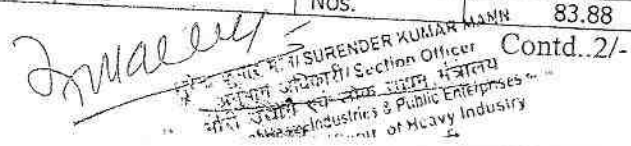 Nos. 83.88
Contd..2/-
SURENDER KUMAR MANN
अनुभाग अधिकारी/Section Officer
भारी उद्योग एवं लोक उद्यम मंत्रालय
Industries & Public Enterprises
of Heavy Industry